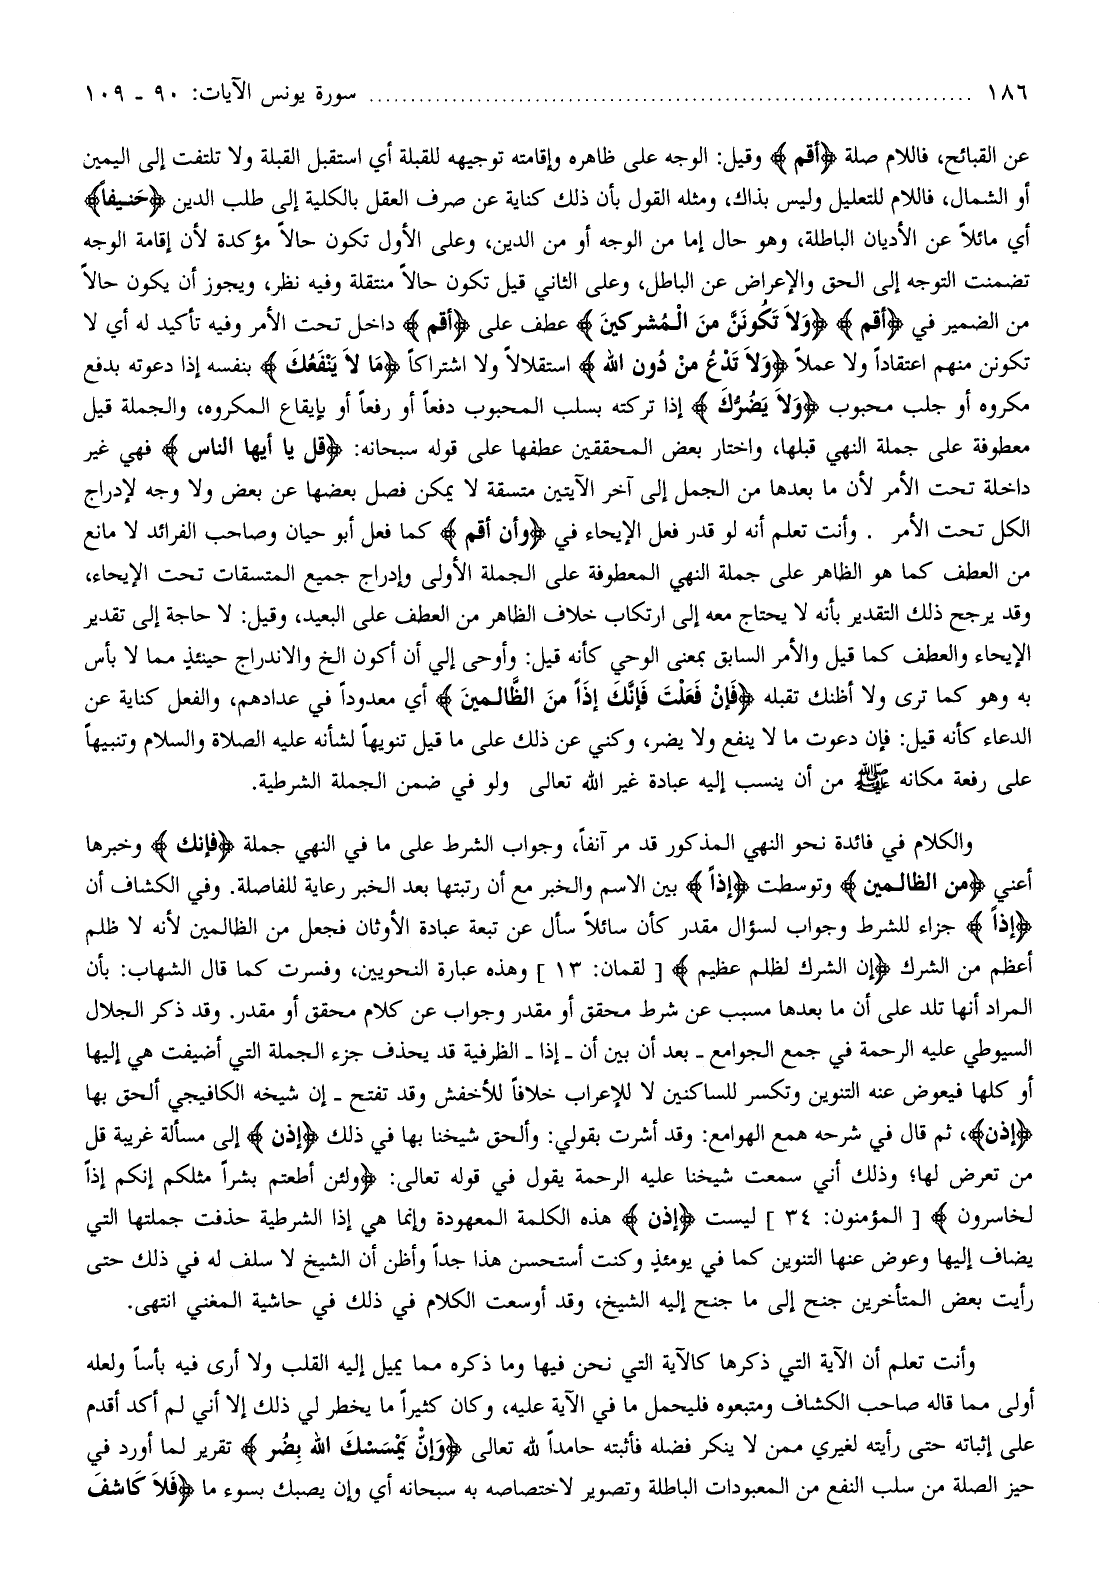 ١٨٦ ........................................................................ سورة يونس الآيات: ٩٠ ـ ١٠٩
عن القبائح، فاللام صلة ﴿أقم﴾ وقيل: الوجه على ظاهره وإقامته توجيهه للقبلة أي استقبل القبلة ولا تلتفت إلى اليمين
أو الشمال، فاللام للتعليل وليس بذاك، ومثله القول بأن ذلك كناية عن صرف العقل بالكلية إلى طلب الدين ﴿حَنيفاً﴾
أي مائلاً عن الأديان الباطلة، وهو حال إما من الوجه أو من الدين، وعلى الأول تكون حالاً مؤكدة لأن إقامة الوجه
تضمنت التوجه إلى الحق والإعراض عن الباطل، وعلى الثاني قيل تكون حالاً منتقلة وفيه نظر، ويجوز أن يكون حالاً
من الضمير في ﴿أقم﴾ ﴿وَلاَ تَكُونَنَّ منَ الْمُشركينَ﴾ عطف على ﴿أقم﴾ داخل تحت الأمر وفيه تأكيد له أي لا
تكونن منهم اعتقاداً ولا عملاً ﴿وَلاَ تَدْعُ منْ دُون الله﴾ استقلالاً ولا اشتراكاً ﴿مَا لاَ يَنْفَعُكَ﴾ بنفسه إذا دعوته بدفع
مكروه أو جلب محبوب ﴿وَلاَ يَضُرُّكَ﴾ إذا تركته بسلب المحبوب دفعاً أو رفعاً أو بإيقاع المكروه، والجملة قيل
معطوفة على جملة النهي قبلها، واختار بعض المحققين عطفها على قوله سبحانه: ﴿قل يا أيها الناس﴾ فهي غير
داخلة تحت الأمر لأن ما بعدها من الجمل إلى آخر الآيتين متسقة لا يمكن فصل بعضها عن بعض ولا وجه لإدراج
الكل تحت الأمر . وأنت تعلم أنه لو قدر فعل الإيحاء في ﴿وأن أقم﴾ كما فعل أبو حيان وصاحب الفرائد لا مانع
من العطف كما هو الظاهر على جملة النهي المعطوفة على الجملة الأولى وإدراج جميع المتسقات تحت الإيحاء،
وقد يرجح ذلك التقدير بأنه لا يحتاج معه إلى ارتكاب خلاف الظاهر من العطف على البعيد، وقيل: لا حاجة إلى تقدير
الإيحاء والعطف كما قيل والأمر السابق بمعنى الوحي كأنه قيل: وأوحى إلي أن أكون الخ والاندراج حينئذٍ مما لا بأس
به وهو كما ترى ولا أظنك تقبله ﴿فَإنْ فَعَلْتَ فَإنَّكَ إذَاً منَ الظَّالمينَ﴾ أي معدوداً في عدادهم، والفعل كناية عن
الدعاء كأنه قيل: فإن دعوت ما لا ينفع ولا يضر، وكني عن ذلك على ما قيل تنويهاً لشأنه عليه الصلاة والسلام وتنبيهاً
على رفعة مكانه ﷺ من أن ينسب إليه عبادة غير الله تعالى ولو في ضمن الجملة الشرطية.
والكلام في فائدة نحو النهي المذكور قد مر آنفاً، وجواب الشرط على ما في النهي جملة ﴿فإنك﴾ وخبرها
أعني ﴿من الظالمين﴾ وتوسطت ﴿إذاً﴾ بين الاسم والخبر مع أن رتبتها بعد الخبر رعاية للفاصلة. وفي الكشاف أن
﴿إذاً﴾ جزاء للشرط وجواب لسؤال مقدر كأن سائلاً سأل عن تبعة عبادة الأوثان فجعل من الظالمين لأنه لا ظلم
أعظم من الشرك ﴿إن الشرك لظلم عظيم﴾ [ لقمان: ١٣ ] وهذه عبارة النحويين، وفسرت كما قال الشهاب: بأن
المراد أنها تلد على أن ما بعدها مسبب عن شرط محقق أو مقدر وجواب عن كلام محقق أو مقدر. وقد ذكر الجلال
السيوطي عليه الرحمة في جمع الجوامع ـ بعد أن بين أن ـ إذا ـ الظرفية قد يحذف جزء الجملة التي أضيفت هي إليها
أو كلها فيعوض عنه التنوين وتكسر للساكنين لا للإعراب خلافاً للأخفش وقد تفتح ـ إن شيخه الكافيجي ألحق بها
﴿إذن﴾، ثم قال في شرحه همع الهوامع: وقد أشرت بقولي: وألحق شيخنا بها في ذلك ﴿إذن﴾ إلى مسألة غريبة قل
من تعرض لها؛ وذلك أني سمعت شيخنا عليه الرحمة يقول في قوله تعالى: ﴿ولئن أطعتم بشراً مثلكم إنكم إذاً
لخاسرون﴾ [ المؤمنون: ٣٤ ] ليست ﴿إذن﴾ هذه الكلمة المعهودة وإنما هي إذا الشرطية حذفت جملتها التي
يضاف إليها وعوض عنها التنوين كما في يومئذٍ وكنت أستحسن هذا جداً وأظن أن الشيخ لا سلف له في ذلك حتى
رأيت بعض المتأخرين جنح إلى ما جنح إليه الشيخ، وقد أوسعت الكلام في ذلك في حاشية المغني انتهى.
وأنت تعلم أن الآية التي ذكرها كالآية التي نحن فيها وما ذكره مما يميل إليه القلب ولا أرى فيه بأساً ولعله
أولى مما قاله صاحب الكشاف ومتبعوه فليحمل ما في الآية عليه، وكان كثيراً ما يخطر لي ذلك إلا أني لم أكد أقدم
على إثباته حتى رأيته لغيري ممن لا ينكر فضله فأثبته حامداً لله تعالى ﴿وَإنْ يَمْسَسْكَ الله بِضُر﴾ تقرير لما أورد في
حيز الصلة من سلب النفع من المعبودات الباطلة وتصوير لاختصاصه به سبحانه أي وإن يصبك بسوء ما ﴿فَلاَ كَاشفَ